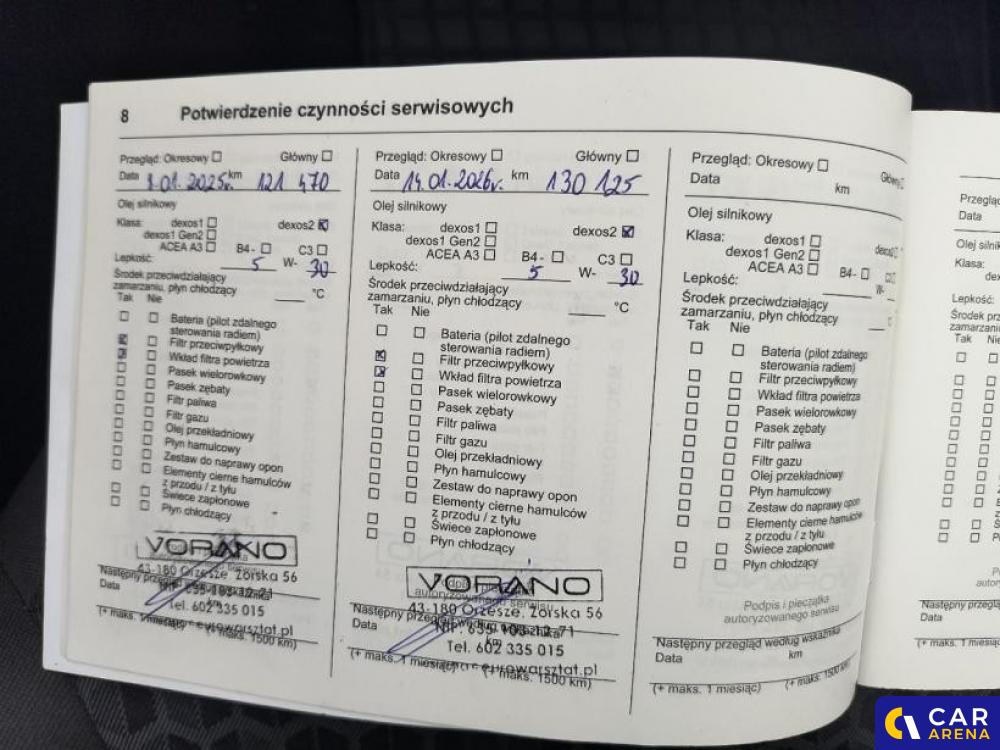 8 Potwierdzenie czynności serwisowych
Przegląd: Okresowy Główny
Data 8.01.2025r. km 121 470
Olej silnikowy
Klasa: dexos1 dexos2
dexos1 Gen2
ACEA A3 B4- C3
Lepkość: 5 W- 30
Środek przeciwdziałający
zamarzaniu, płyn chłodzący °C
Tak Nie
Bateria (pilot zdalnego
sterowania radiem)
Filtr przeciwpyłkowy
Wkład filtra powietrza
Pasek wielorowkowy
Pasek zębaty
Filtr paliwa
Filtr gazu
Olej przekładniowy
Płyn hamulcowy
Zestaw do naprawy opon
Elementy cierne hamulców
z przodu / z tyłu
Świece zapłonowe
Płyn chłodzący
VORANO
43-180 Orzesze, Żorska 56
Następny przegląd
NIP: 635-103-12-71
Data
Tel. 602 335 015
(+ maks. 1 miesiąc) (+ maks. 1500 km)
eurowarsztat.pl
Przegląd: Okresowy Główny
Data 14.01.2026r. km 130 125
Olej silnikowy
Klasa: dexos1 dexos2
dexos1 Gen2
ACEA A3 B4- C3
Lepkość: 5 W- 30
Środek przeciwdziałający
zamarzaniu, płyn chłodzący °C
Tak Nie
Bateria (pilot zdalnego
sterowania radiem)
Filtr przeciwpyłkowy
Wkład filtra powietrza
Pasek wielorowkowy
Pasek zębaty
Filtr paliwa
Filtr gazu
Olej przekładniowy
Płyn hamulcowy
Zestaw do naprawy opon
Elementy cierne hamulców
z przodu / z tyłu
Świece zapłonowe
Płyn chłodzący
VORANO
autoryzowanego serwisu
43-180 Orzesze, Żorska 56
Następny przegląd według wskaźnika
NIP: 635-103-12-71
Data km
Tel. 602 335 015
(+ maks. 1 miesiąc) (+ maks. 1500 km)
eurowarsztat.pl
Przegląd: Okresowy Główny
Data km
Olej silnikowy
Klasa: dexos1 dexos2
dexos1 Gen2
ACEA A3 B4-
Lepkość: W-
Środek przeciwdziałający
zamarzaniu, płyn chłodzący °C
Tak Nie
Bateria (pilot zdalnego
sterowania radiem)
Filtr przeciwpyłkowy
Wkład filtra powietrza
Pasek wielorowkowy
Pasek zębaty
Filtr paliwa
Filtr gazu
Olej przekładniowy
Płyn hamulcowy
Zestaw do naprawy opon
Elementy cierne hamulców
z przodu / z tyłu
Świece zapłonowe
Płyn chłodzący
Podpis i pieczątka
autoryzowanego serwisu
Następny przegląd według wskaźnika
Data km
(+ maks. 1 miesiąc) (+ maks. 1500 km)
Data
Klasa:
Lepkość:
Tak
Data
(+ maks.
CAR
ARENA